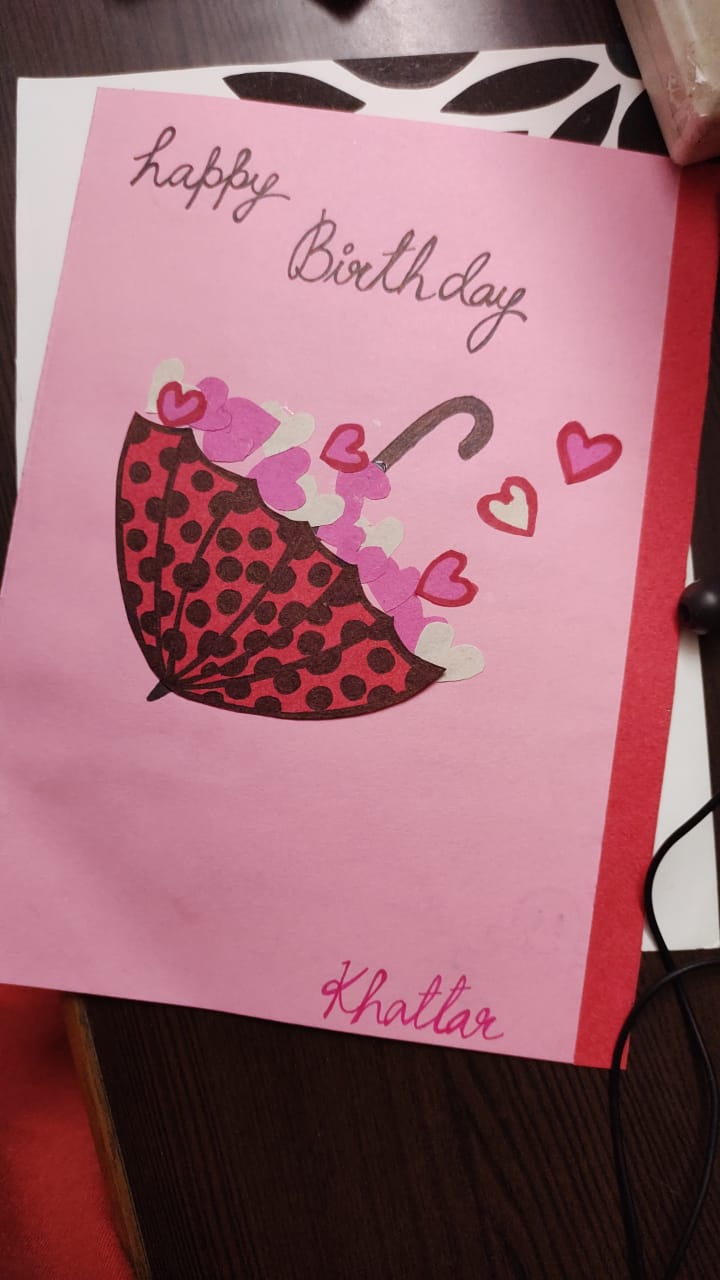 happy
Birthday
Khattar